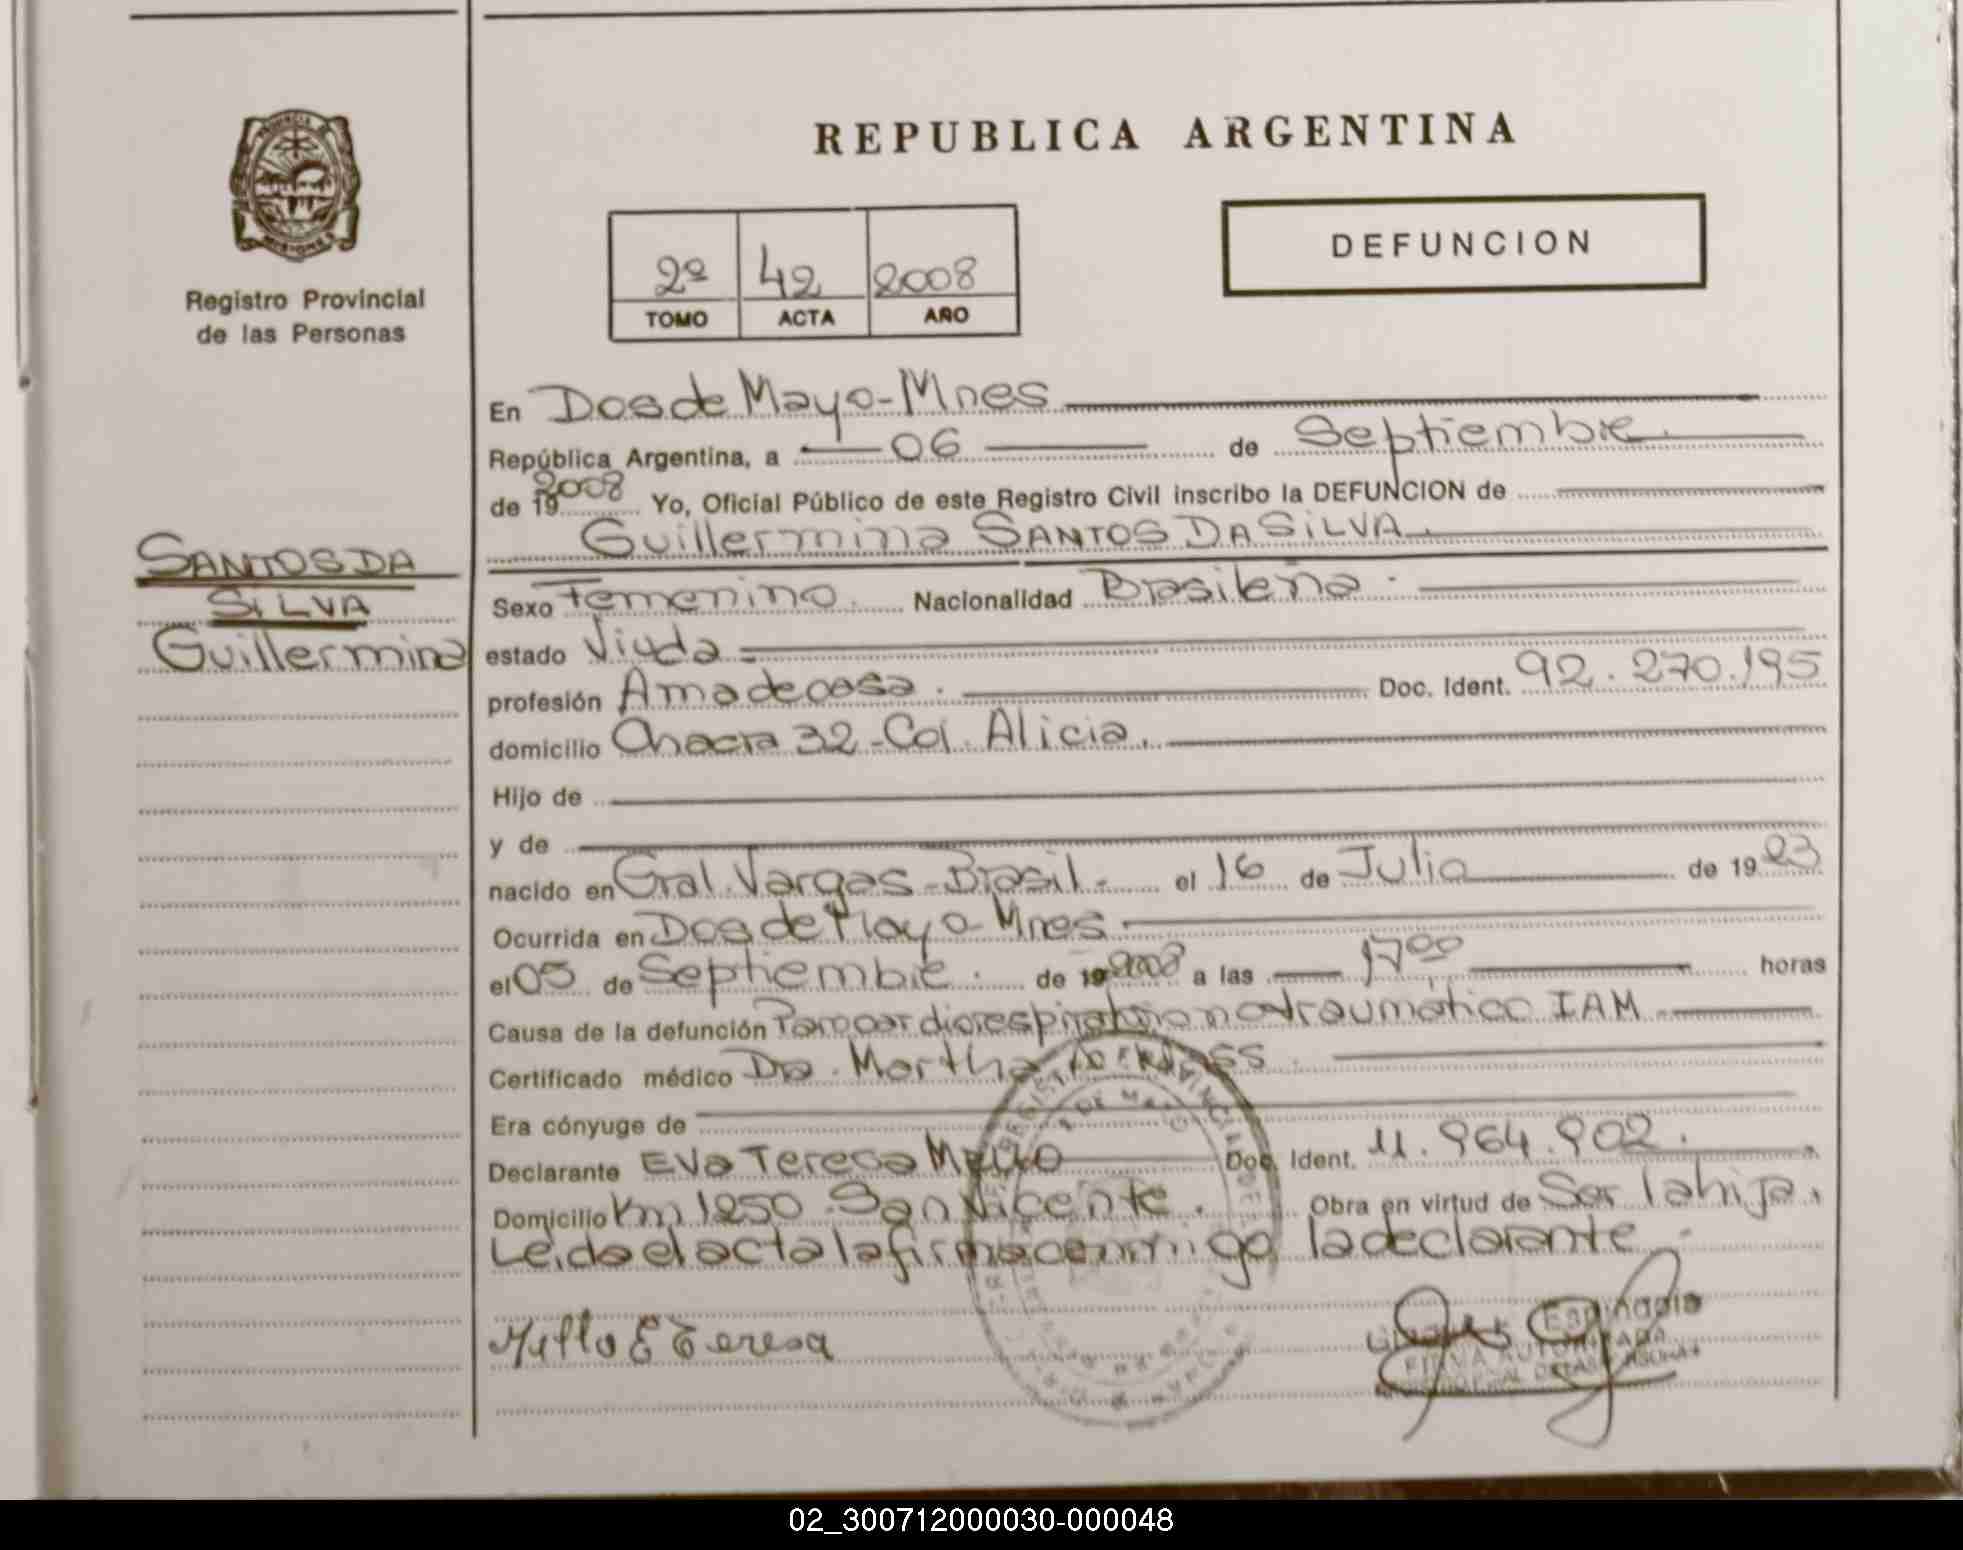 REPUBLICA ARGENTINA
DEFUNCION
2º 42 2008
TOMO ACTA AÑO
PROVINCIA DE MISIONES
Registro Provincial
de las Personas
SANTOS DA
SILVA
Guillermina
En Dos de Mayo - Mnes
República Argentina, a 06 de Septiembre
de 19 2008 Yo, Oficial Público de este Registro Civil inscribo la DEFUNCION de
Guillermina SANTOS DA SILVA
Sexo Femenino. Nacionalidad Brasileña.
estado Viuda
profesión Ama de casa. Doc. Ident. 92.270.195
domicilio Chacra 32 - Col. Alicia.
Hijo de
y de
nacido en Gral. Vargas - Brasil - el 16 de Julio de 19 23
Ocurrida en Dos de Mayo - Mnes
el 05 de Septiembre. de 19 2008 a las 17 00 horas
Causa de la defunción Paro cardiorespiratorio no traumático IAM
Certificado médico Dra. Martha
Era cónyuge de
Declarante Eva Teresa Mello Doc. Ident. 11.964.902.
Domicilio Km 1250 - San Vicente. Obra en virtud de Ser la hija.
Leida el acta la firma conmigo la declarante.
Mello E Teresa
Espindola
FIRMA AUTORIZADA
02_300712000030-000048